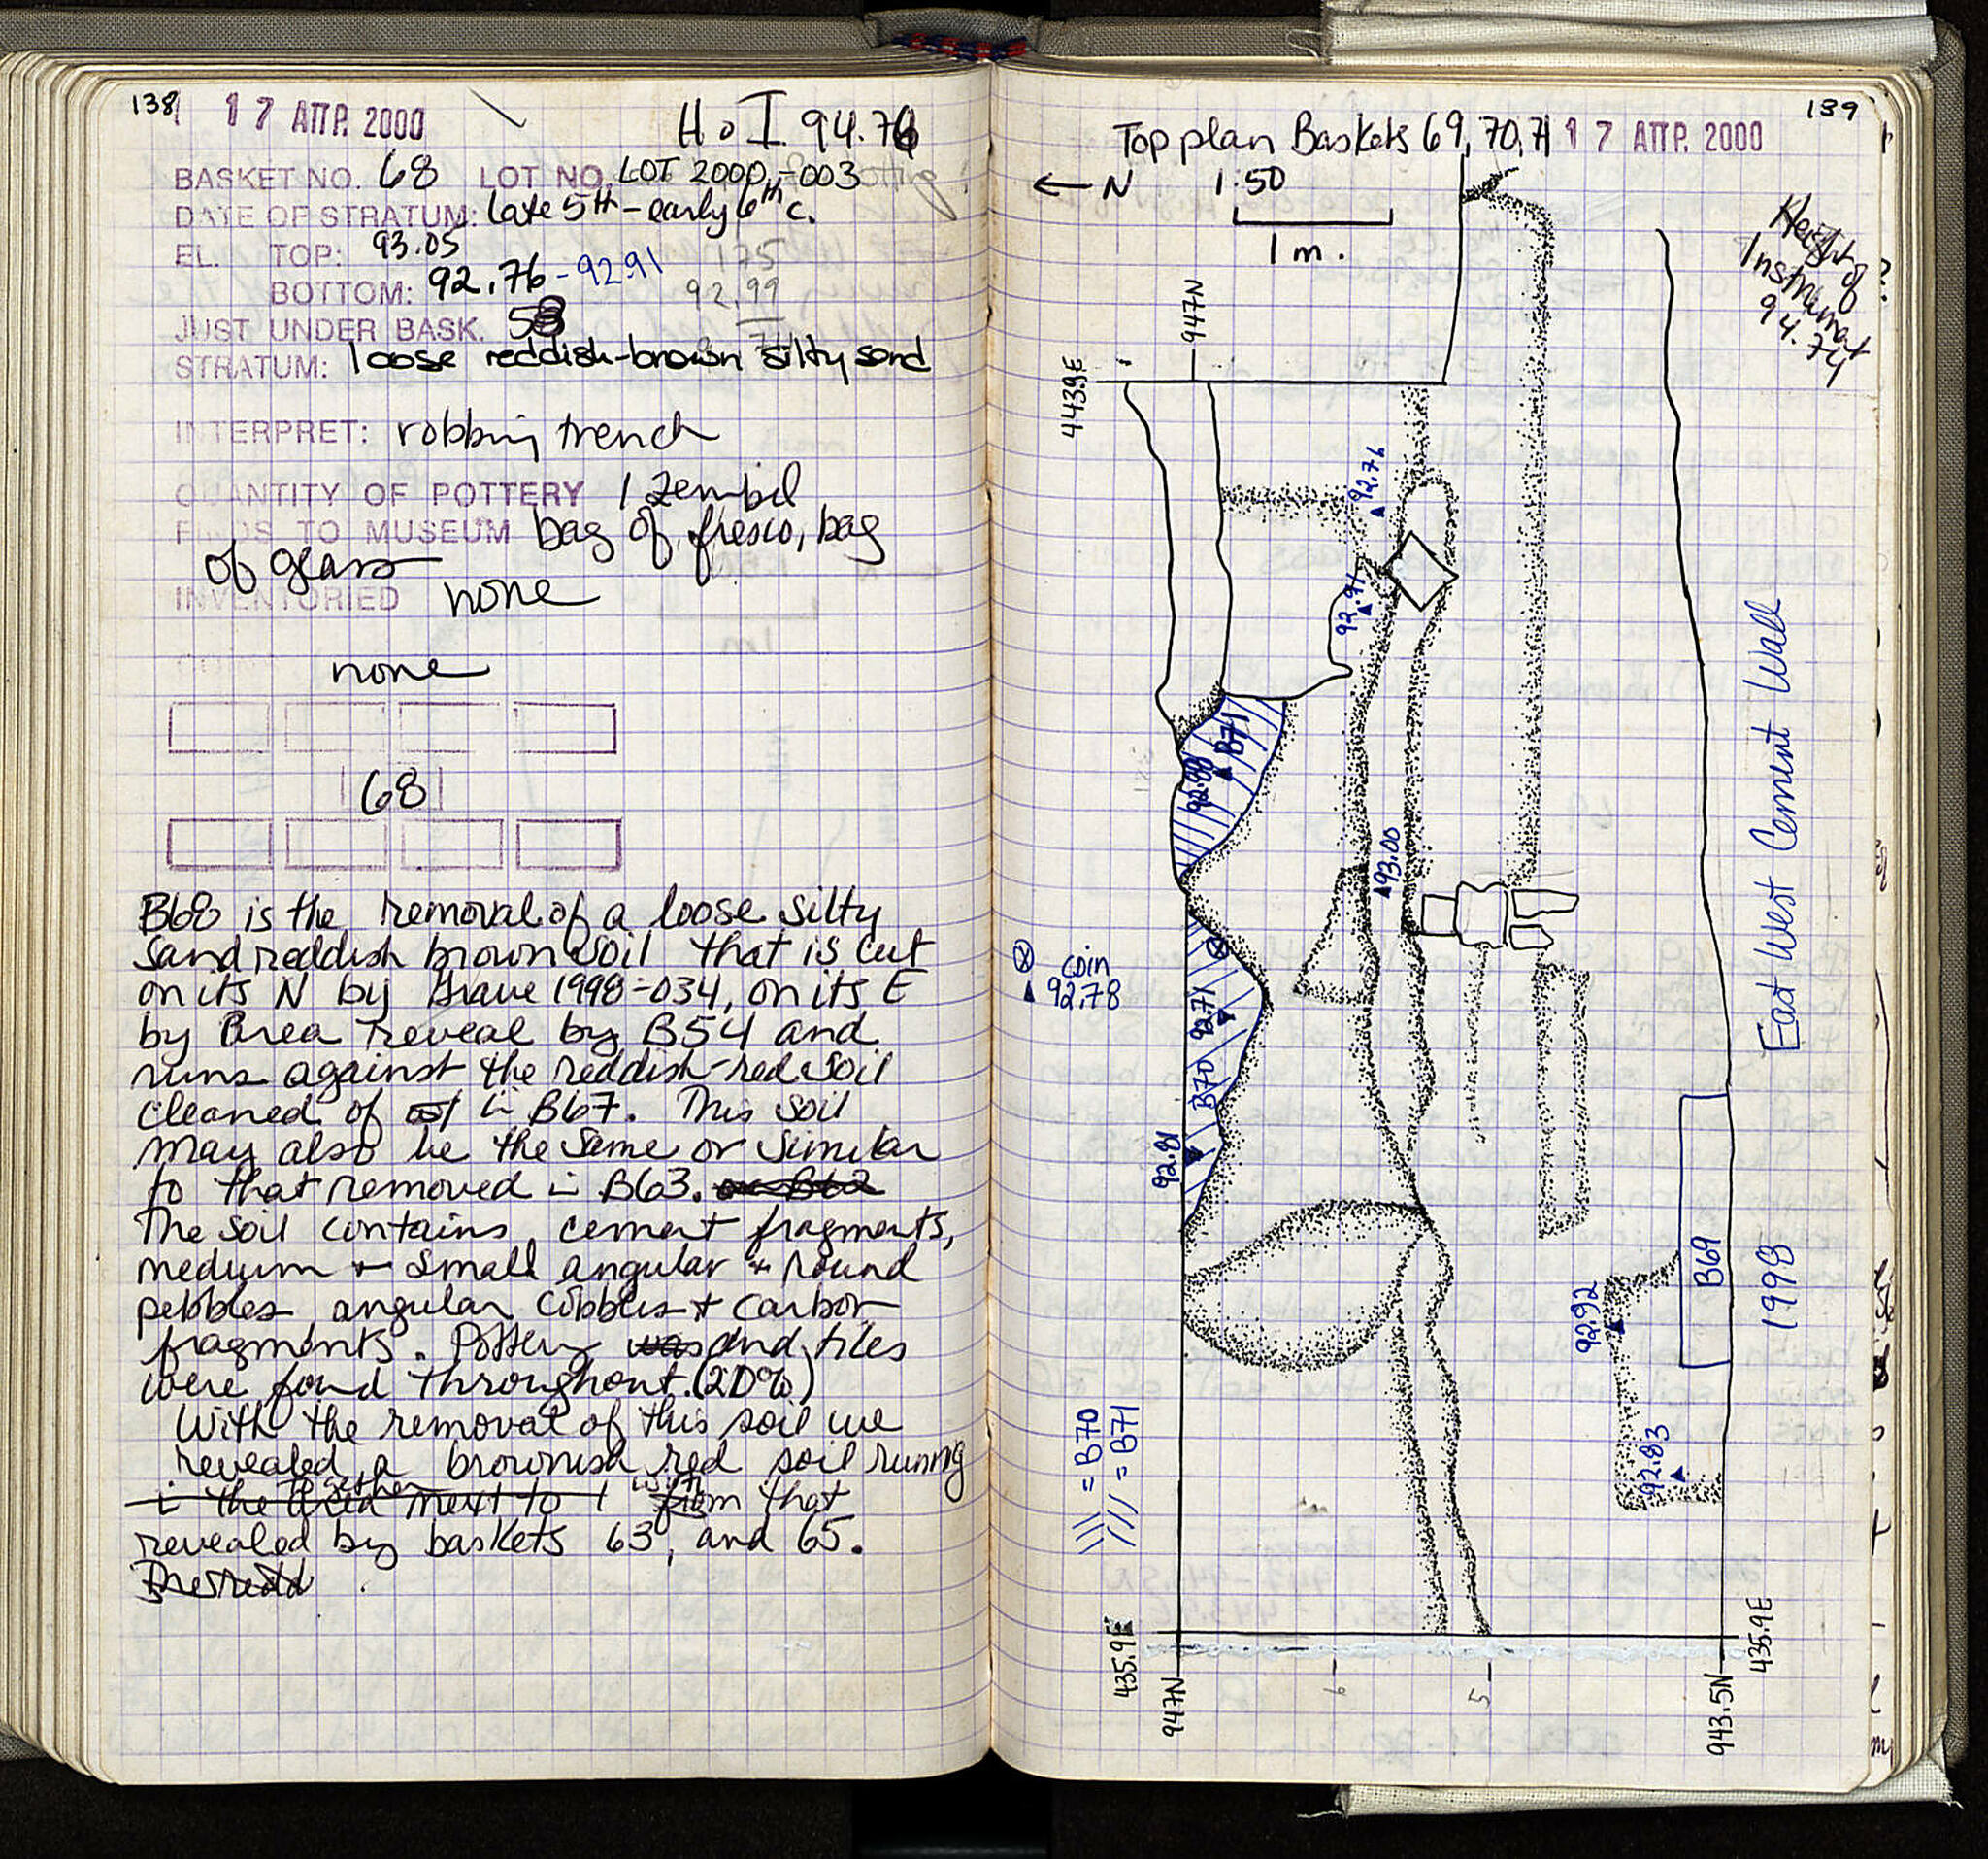 138
17 ΑΠΡ. 2000
H o I 94.74
BASKET NO. 68 LOT NO. LOT 2000-003
DATE OF STRATUM: late 5th - early 6th c.
EL. TOP: 93.05
BOTTOM: 92.76 - 92.91
175
92.99
JUST UNDER BASK. 58
STRATUM: loose reddish-brown silty sand
INTERPRET: robbing trench
QUANTITY OF POTTERY 1 zembil
FINDS TO MUSEUM bag of fresco, bag
of glass
INVENTORIED none
COINS
none
68
B68 is the removal of a loose silty
sand reddish brown soil that is cut
on its N by Grave 1998-034, on its E
by area reveal by B54 and
runs against the reddish-red soil
cleaned of in B67. This soil
may also be the same or similar
to that removed in B63. or B62
The soil contains cement fragments,
medium + small angular + round
pebbles angular cobbles + carbon
fragments. Pottery was and tiles
were found throughout. (20%)
With the removal of this soil we
revealed a brownish red soil running
together with
in the area next to from that
revealed by baskets 63, and 65.
139
Top plan Baskets 69, 70, 71 17 ΑΠΡ. 2000
← N 1:50
1 m.
Height of
Instrument
94.74
947N
443.9E
92.76
92.91
92.88 B71
93.00
⊗ coin
▲ 92.78
B70 92.71
92.81
East West Cement Wall
1998
B69
92.92
92.83
\\\ = B70
/// = B71
435.9E
947N
6
5
943.5N
435.9E